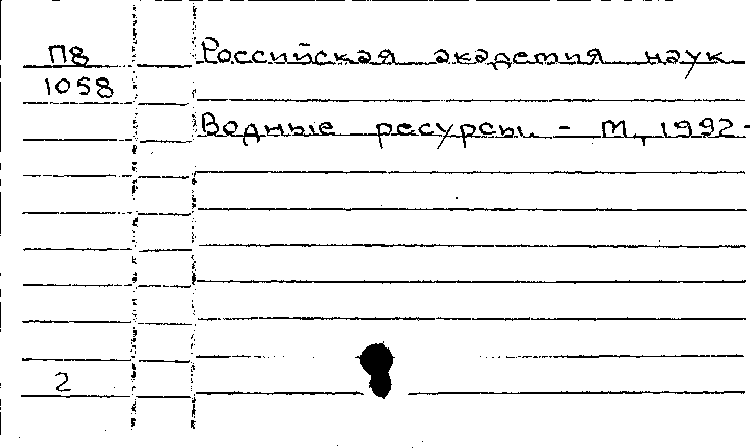 П8 Российская академия наук
1058
Водные ресурсы. - М., 1992-
2